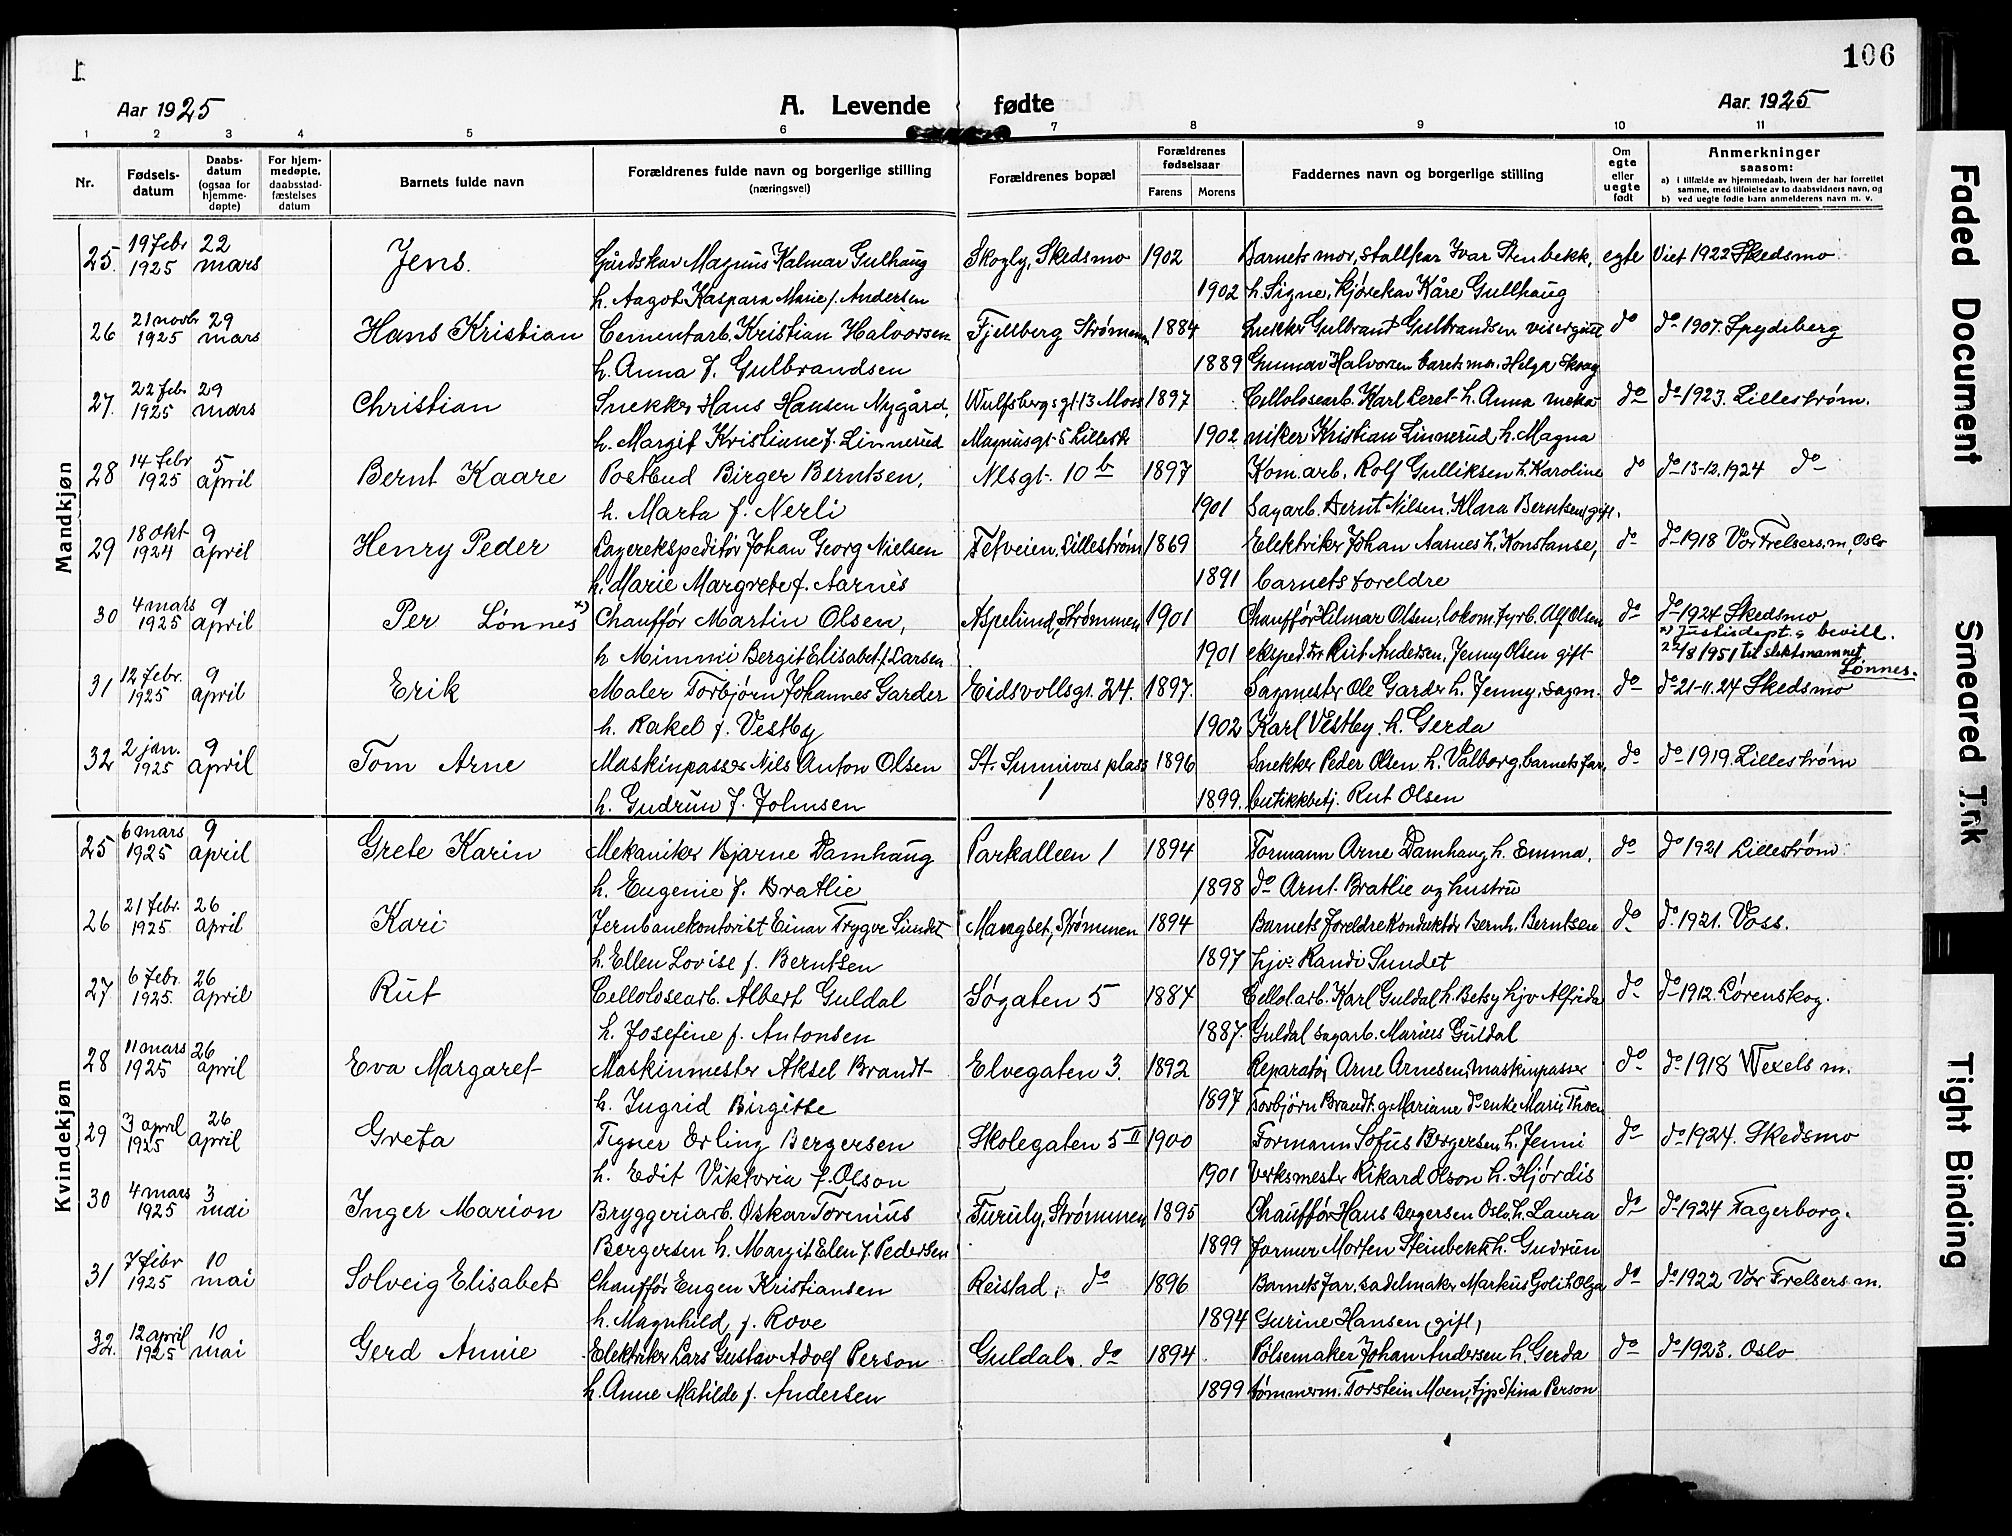 106
Aar 1925 A. Levende fødte Aar 1925
1 2 3 4 5 6 7 8 9 10 11
Nr. Fødsels-datum Daabs-datum (ogsaa for hjemme-døpte) For hjem-medøpte, daabsstad-fæstelses datum Barnets fulde navn Forældrenes fulde navn og borgerlige stilling (næringsvei) Forældrenes bopæl Forældrenes fødselsaar Farens Morens Faddernes navn og borgerlige stilling Om egte eller uegte født Anmerkninger saasom: a) i tilfælde av hjemmedaab, hvem der har forrettet samme, med tilføielse av to daabsvidners navn, og b) ved uegte fødte barn anmelderens navn m. v.
Mandkjøn
25. 19 febr 1925 22 mars Jens. Gårdskar Magnus Kalmar Gulhaug Skogly, Skedsmo 1902 Barnets mor, stallkar Ivar Stenbekk, egte Viet 1922 Skedsmo
h. Aagot Kaspara Marie f. Andersen 1902 h. Signe, kjørekar Kåre Gullhaug
26 21 novbr 1925 29 mars Hans Kristian Cementarb. Kristian Halvorsen Fjellberg Strømmen 1884 Snekker Gulbrant Gulbrandsen visergutt do do 1907. Spydeberg
h. Anna f. Gulbrandsen 1889 Gunnar Halvorsen barets mor. Helga Skaug
27. 22 febr 1925 29 mars Christian Snekker Hans Hansen Nygård, Wulfsbergs gt. 13 Moss 1897 Cellolosearb. Karl Leret h. Anna meka- do do 1923. Lillestrøm.
h. Margit Kristiane f. Linnerud Magnusgt. 5 Lillestr 1902 niker Kristian Linnerud, h. Magna
28 14 febr 1925 5 april Bernt Kaare Postbud Birger Berntsen, Nlsgt. 10 b 1897 Kom.arb. Rolf Gulliksen h. Karoline do do 13-12.1924 do
h. Marta f. Nerli 1901 Sagarb. Bernt Nilsen. Klara Berntsen, gift.
29 18 okt 1924 9 april Henry Peder Lagerekspeditør Johan Georg Nielsen Tetveien, Lillestrøm 1869 Elektriker Johan Aarnes h. Konstanse, do do 1918 Vor Frelsers. m, Oslo
h. Marie Margrete f. Aarnes 1891 barnets foreldre
30 4 mars 1925 9 april Per Lønnes x) Chauffør Martin Olsen, Aspelund, Strømmen 1901 Chauffør Hilmar Olsen, lokom.fyrb. Alf Olsen do do 1924 Skedsmo
x) Justisdept.s bevill.
h Mimmi Bergit Elisabet f. Larsen 1901 ekspedtr. Rut Andersen, Jenny Olsen gift 22/8 1951 til slektsnamnet
Lønnes.
31 12 febr. 1925 9 april Erik Maler Torbjørn Johannes Garder Eidsvollsgt. 24. 1897. Sagmester Ole Garder h. Jenny, sagm. do do 21-11.24 Skedsmo
h. Rakel f. Vestby 1902 Karl Vestby. h. Gerda
32 2 jan. 1925 9 april Tom Arne Maskinpasser Nils Anton Olsen St. Sunnivas plass 1896 Snekker Peder Olsen h. Valborg, barnets far, do do 1919. Lillestrøm
h. Gudrun f. Johnsen 1899. butikkbetj. Rut Olsen
Kvindekjøn
25 6 mars 1925 9 april Grete Karin Mekaniker Bjarne Damhaug Parkalleen 1 1894 Formann Arne Damhaug h. Emma, do do 1921 Lillestrøm
h. Eugenie f. Bratlie 1898 do Arnt. Bratlie og hustru
26 21 febr. 1925 26 april Kari Jernbanekontorist Einar Trygve Sundet Mangset, Strømmen 1894 Barnets foreldre Konduktør Bernh. Berntsen do do. 1921. Voss.
h. Ellen Lovise f. Berntsen 1897 hjv: Randi Sundet
27 6 febr. 1925. 26 april Rut Cellolosearb. Albert Guldal Søgaten 5 1884 Cellol.arb. Karl Guldal h. Betsy hjv Alfrida do do 1912. Lørenskog.
h. Josefine f. Antonsen 1887. Guldal sagarb. Marius Guldal
28 11 mars 1925 26 april Eva Margaret Maskinmester Aksel Brandt Elvegaten 3. 1892 Reparatør Arne Arnesen, maskinpasser do do 1918 Wexels m.
h. Ingrid Birgitte 1897 Torbjørn Brandt. g. Mariane do enke Marie Thoen
29 3 april 1925 26 april Greta Tegner Erling Bergersen Skolegaten 5 II 1900 Formann Sofus Bergersen h. Jenni do do 1924. Skedsmo
h. Edit Viktoria f. Olson 1901 Verksmester Rikard Olson h. Hjørdis
30 4 mars 1925 3 mai Inger Marion Bryggeriarb. Oskar Torenius Furuly, Strømmen 1895 Chauffør Hans Bergersen Oslo, h. Laura do do 1924 Fagerborg.
Bergersen h. Margit Elen f. Pedersen 1899 farmer Morten Steinbekk h. Gudrun
31 7 febr 1925 10 mai Solveig Elisabet Chauffør Eugen Kristiansen Reistad, do 1896 Barnets far, sadelmaker Markus Goli h. Olga do do 1922 Vor Frelsers m.
h. Magnhild f. Rove 1894 Gurine Hansen, gift,
32. 12 april 1925 10 mai Gerd Annie Elektriker Lars Gustav Adolf Person Guldal. do 1894 Pølsemaker Johan Andersen h. Gerda do do 1923. Oslo
h. Anne Matilde f. Andersen 1899 tømmerm. Torstein Moen, tjp Stina Person
Faded Document
Smeared Ink
Tight Binding